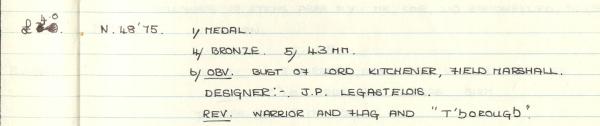 £ 4.0 N. 48'75. 1/ MEDAL.
4/ BRONZE. 5/ 43 MM.
6/ OBV. BUST OF LORD KITCHENER, FIELD MARSHALL.
DESIGNER:-. J.P. LEGASTELOIS.
REV. WARRIOR AND FLAG AND "T'BOROUGH".